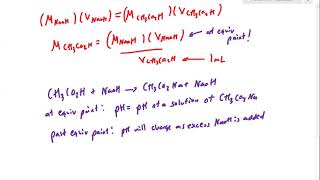 (M NaOH)(V NaOH) = (M CH3CO2H)(V CH3CO2H)
M CH3CO2H = (M NaOH)(V NaOH) ← at equiv point!
V CH3CO2H ← 1mL
CH3CO2H + NaOH → CH3CO2Na + NaOH
at equiv point: pH = pH of a solution of CH3CO2Na
past equiv point: pH will change as excess NaOH is added